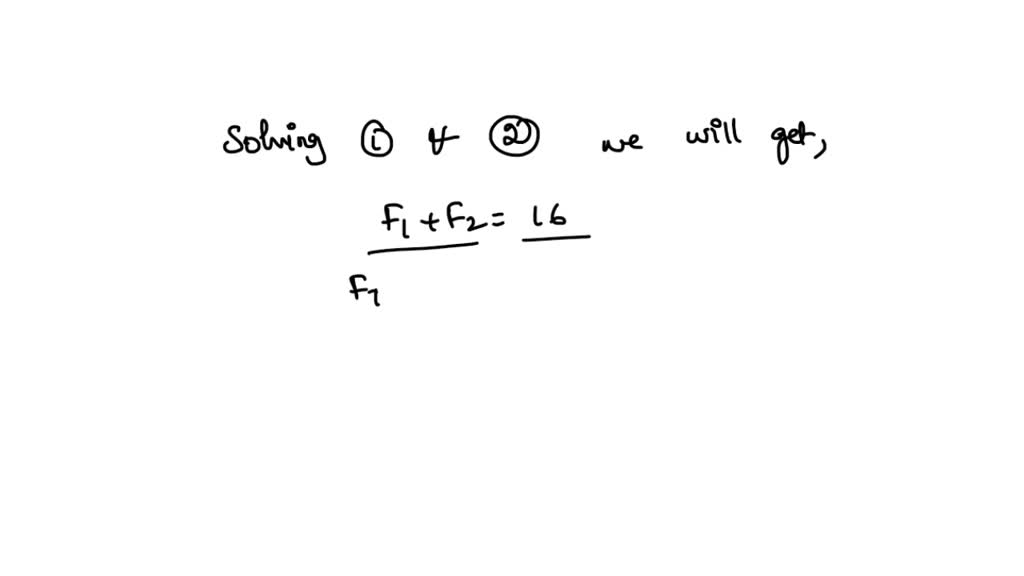 Solving ① & ② we will get,
F₁ + F₂ = 16
F₁